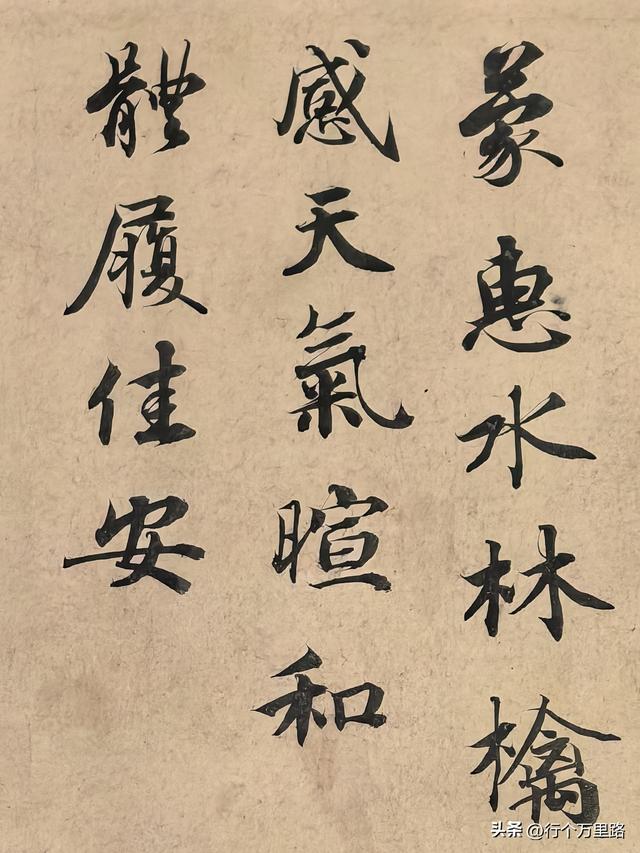 蒙惠水林檎
感天氣暄和
體履佳安
头条 @行个万里路